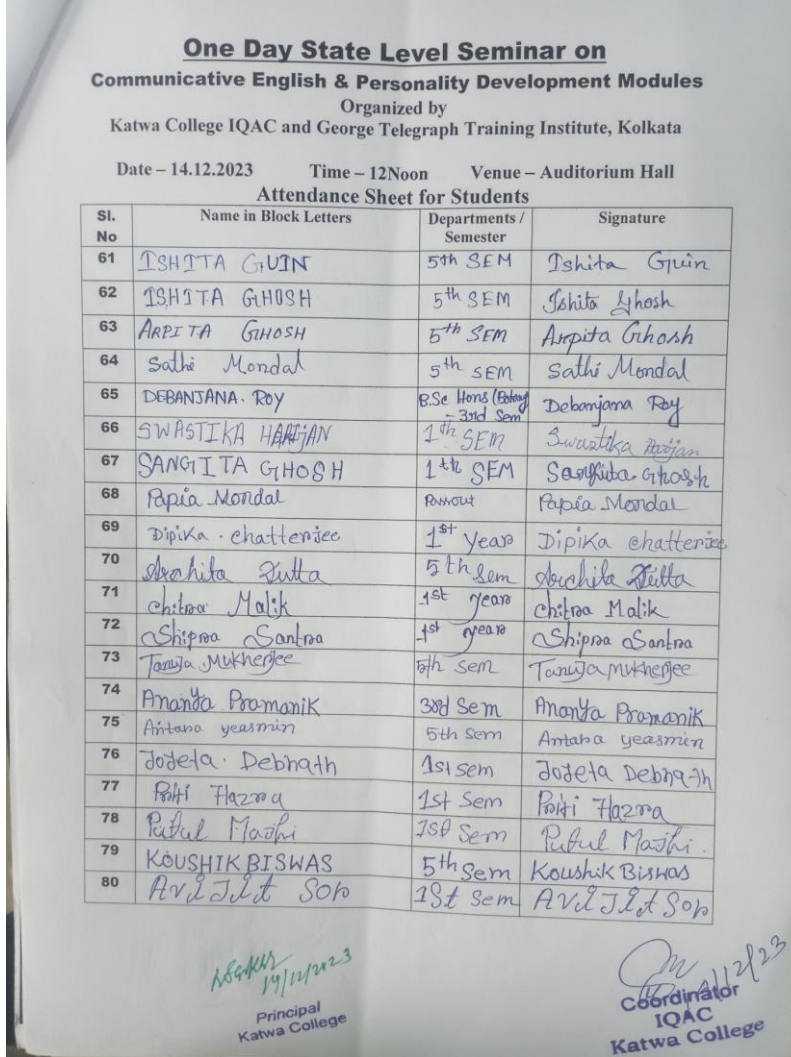 One Day State Level Seminar on
Communicative English & Personality Development Modules
Organized by
Katwa College IQAC and George Telegraph Training Institute, Kolkata
Date – 14.12.2023 Time – 12Noon Venue – Auditorium Hall
Attendance Sheet for Students
Sl. No Name in Block Letters Departments / Semester Signature
61 ISHITA GUIN 5th SEM Ishita Guin
62 ISHITA GHOSH 5th SEM Ishita Ghosh
63 ARPITA GHOSH 5th SEM Arpita Ghosh
64 Sathi Mondal 5th SEM Sathi Mondal
65 DEBANJANA. ROY B.Sc Hons (Botany) - 3rd Sem Debanjana Roy
66 SWASTIKA HARIJAN 1th SEM Swastika Harijan
67 SANGITA GHOSH 1th SEM Sangita Ghosh
68 Papia Mondal Passout Papia Mondal
69 Dipika . chatterjee 1st Year Dipika chatterjee
70 Archita Dutta 5th sem Archita Dutta
71 chitra Malik 1st year chitra Malik
72 Shipra Santra 1st year Shipra Santra
73 Tanuja Mukherjee 5th sem Tanuja Mukherjee
74 Ananya Pramanik 3rd Sem Ananya Pramanik
75 Antara yeasmin 5th Sem Antara yeasmin
76 Debnath 1st sem Debnath
77 Priti Hazra 1st Sem Priti Hazra
78 Putul Majhi 1st Sem Putul Majhi.
79 KOUSHIK BISWAS 5th Sem Koushik Biswas
80 AviJit Sor 1St Sem AviJit Sor
14/12/2023
Principal
Katwa College
/12/23
Coordinator
IQAC
Katwa College